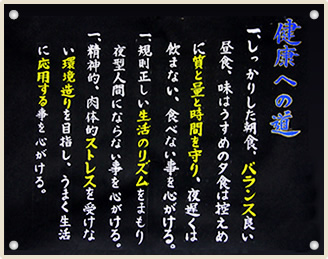 健康への道
一、しっかりした朝食、バランス良い
昼食、味はうすめの夕食は控えめ
に質と量と時間を守り、夜遅くは
飲まない、食べない事を心がける。
一、規則正しい生活のリズムをまもり
夜型人間にならない事を心がける。
一、精神的、肉体的ストレスを受けな
い環境造りを目指し、うまく生活
に応用する事を心がける。